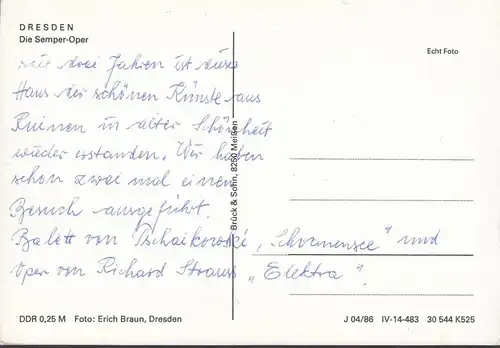 DRESDEN
Die Semper-Oper
Echt Foto
seit drei Jahren ist dieses
Haus der schönen Künste aus
Ruinen in alter Schönheit
wieder erstanden. Wir haben
schon zwei mal einen
Besuch ausgeführt.
Balett von Tschaikowski „Schwanensee" und
Oper von Richard Strauss „Elektra".
Brück & Sohn, 8250 Meißen
DDR 0,25 M Foto: Erich Braun, Dresden
J 04/86 IV-14-483 30 544 K525